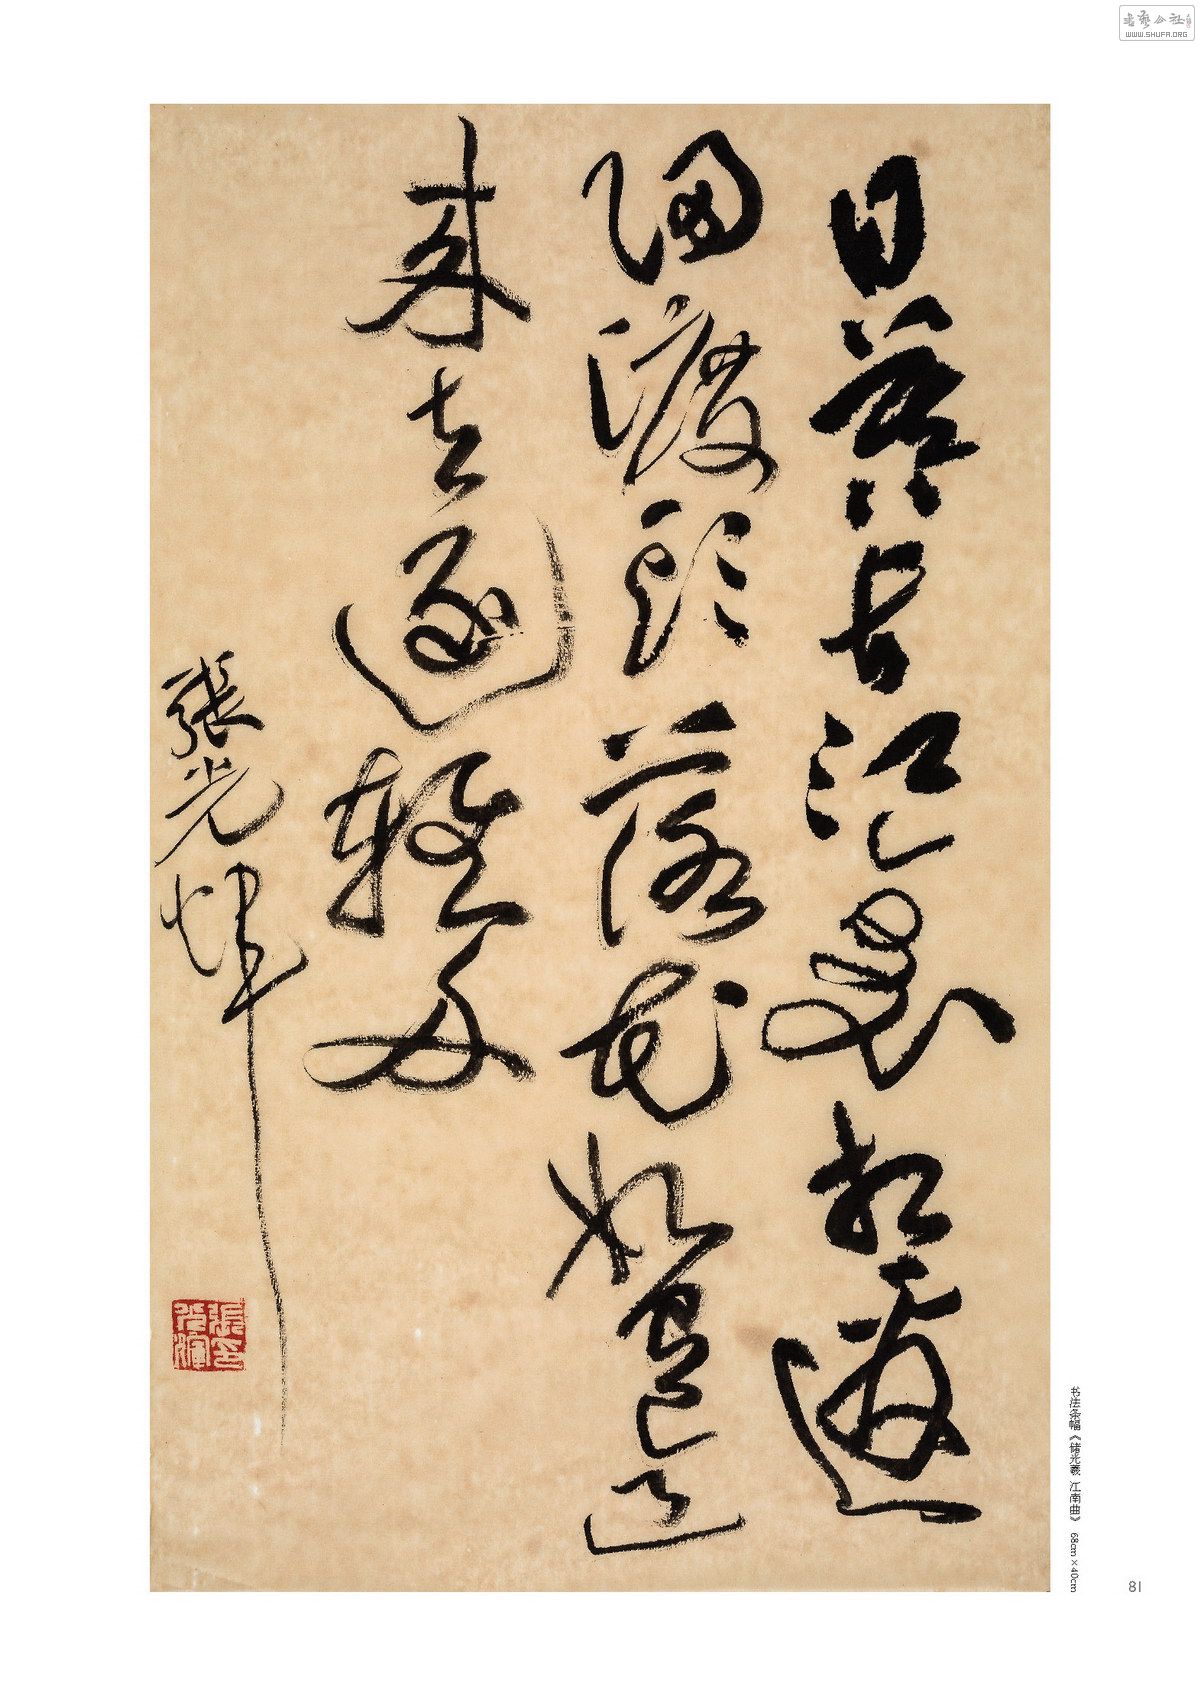 书艺公社
WWW.SHUFA.ORG
日暮長江裏相邀
歸渡頭落花如有意
来去逐輕舟
張光煇
书法条幅《储光羲 江南曲》 68cm×40cm
81